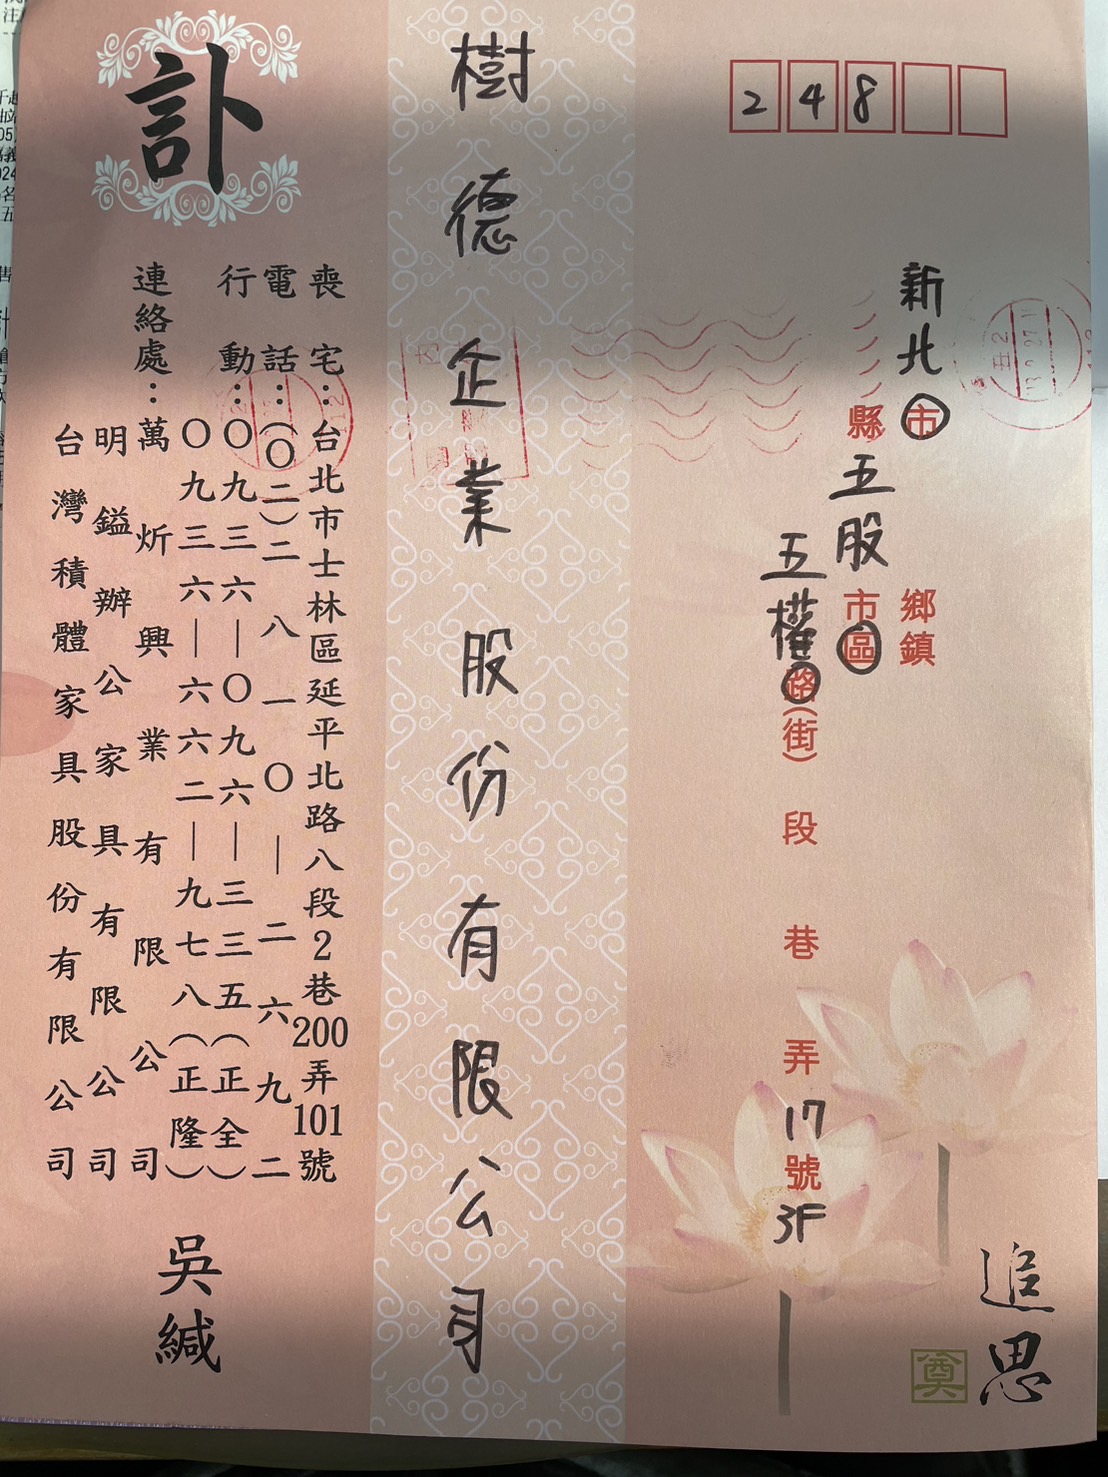 248
新北市
縣
鄉鎮
五股市區
五權路(街) 段 巷 弄17號3F
追思
奠
樹德企業股份有限公司
訃
喪宅：台北市士林區延平北路八段2巷200弄101號
電話：(〇二)二八一〇－二六九二
行動：〇九三六－〇九六－三三五(正全)
〇九三六－六六二－九七八(正隆)
連絡處：萬炘興業有限公司
明鎰辦公家具有限公司
台灣積體家具股份有限公司
吳緘